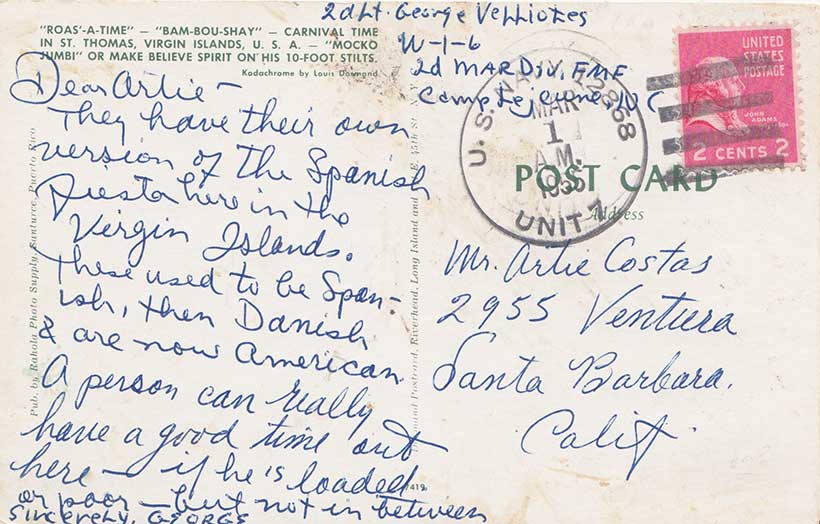 "ROAS'-A-TIME" — "BAM-BOU-SHAY" — CARNIVAL TIME
IN ST. THOMAS, VIRGIN ISLANDS, U. S. A. — "MOCKO
JUMBI" OR MAKE BELIEVE SPIRIT ON HIS 10-FOOT STILTS.
Kodachrome by Louis Dormand
Dear Artie –
They have their own
version of the Spanish
Fiesta here in the
Virgin Islands.
These used to be Span-
ish, then Danish
& are now American.
A person can really
have a good time out
here – if he is loaded
or poor – but not in between
Sincerely, GEORGE
Pub. by Rahola Photo Supply, Santurce, Puerto Rico
2d Lt. George
W-1-6
2d MAR DIV, FMF
Camp Lejeune, N C
U. S. NAVY 12868
MAR
1
A.M.
1955
UNIT 7
UNITED
STATES
POSTAGE
JOHN
ADAMS
2 CENTS 2
POST CARD
Address
Mr. Artie Costas
2955 Ventura
Santa Barbara,
Calif.
Postcard, Riverhead, Long Island and